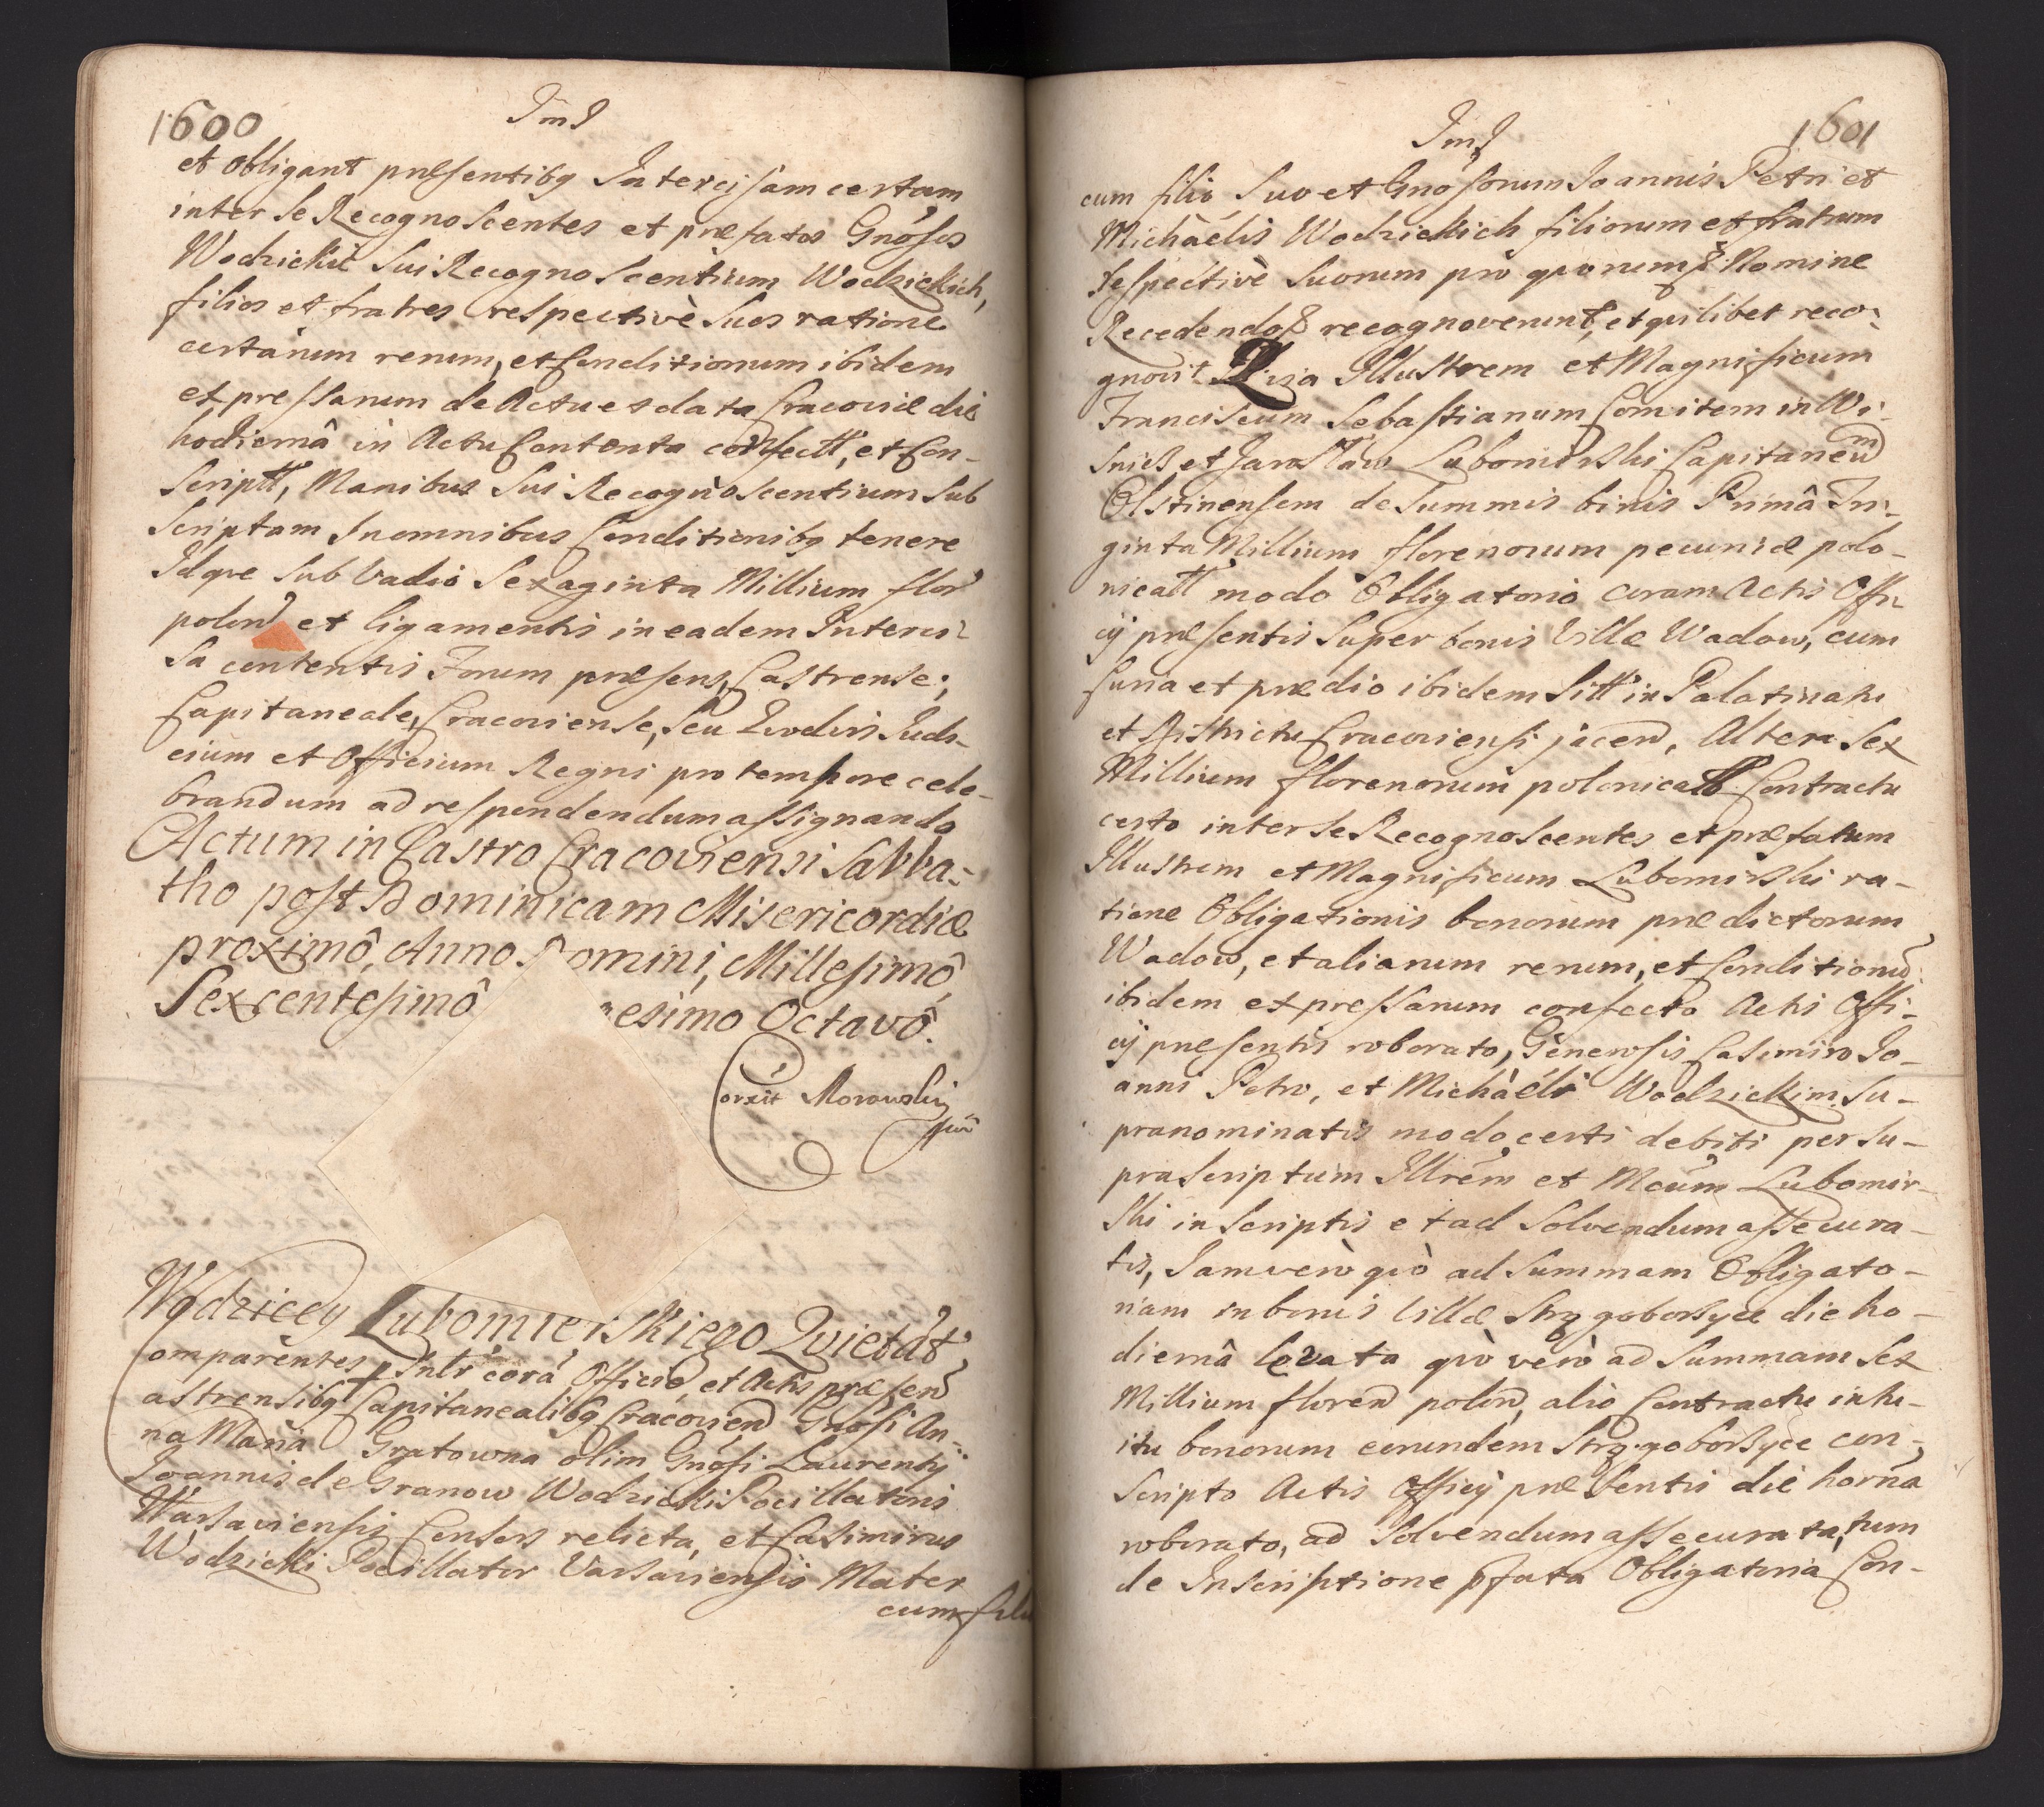 1600
et obligant præsentibq Intercisam certam
inter se Recognoscentes et præfatos Gnosos
Wodzickie sui Recognoscentium Wodzickich,
filios et fratres respectivè suos ratione
certarum rerum, et Conditionum ibidem
expressarum de Actu et data Cracoviæ die
hodiernâ in Actu Contenta confectt, et Con-
scriptt, Manibus sui Recognoscentium sub
scriptam In omnibus Conditionibq tenere
Idque sub Vadio Sexaginta Millium flor
polon et ligamentis in eadem Interci-
sa contentis Forum præsens, Castrense,
Capitaneale, Cracoviense, seu Quodvis Judi-
cium et Officium Regni pro tempore cele-
brandum ad respondendum assignando
Actum in Castro Cracoviensi Sabba-
tho post Dominicam Misericordiæ
proximô, Anno Domini, Millesimô
Sexcentesimô esimo Octavô.
Corxit Morowski
Wodziccy Lubomierskiego Quietat
Comparentes psntr corá Officio, et Actis præsen
astrensibq Capitanealibq Cracovien Gnosi An-
na Maria Gratowna olim Gnosi Laurentij
Joannis de Granow Wodzicki Pocillatoris
Warsaviensis Consors relicta, et Casimirus
Wodzicki Pocillator Varsaviensis Mater
cum filio
1601
cum filio suo et Gnosorum Joannis Petri et
Michàelis Wodzickich filiorum et fratrum
respectivè suorum pro quorum Nomine
Recedendo recognoverunt, et quilibet reco-
gnovit Quia Illustrem et Magnificum
Franciscum Sebastianum Comitem in Wi-
snicz et Jarosław Lubomirski Capitaneum
Olstinensem de Summis binis Primâ Tri-
ginta Millium florenorum pecuniæ polo-
nicatt modo Obligatorio coram Actis Offi-
cij præsentis super bonis Villæ Wadow, cum
Curia et prædio ibidem sitt in Palatinatu
et Districtu Cracoviensi jacen, Altera Sex
Millium florenorum polonicatt Contractu
certo inter se Recognoscentes et præfatum
Illustrem et Magnificum Lubomirski ra-
tione Obligationis bonorum prædictorum
Wadow, et aliarum rerum, et Conditionu
ibidem expressarum confecto Actis Offi-
cij præsentis roborato, Generosis Casimiro Jo-
anni Petro, et Michàeli Wodzickim su-
pranominatis modo certi debiti per su-
prascriptum Illrem et Mcum Lubomir-
ski inscriptis et ad solvendum assecura-
tis, Jam verò quò ad Summam Obligato-
riam in bonis Villæ Strzgoborzyce die ho-
diernâ levata quò verò ad Summam Sex
Millium floren polon, alio Contractu intu-
itu bonorum eorundem Strzgoborzyce con-
scripto Actis Officij præsentis die horna
roborato, ad solvendum assecurata, tum
de Inscriptione pfata Obligatoria Con-